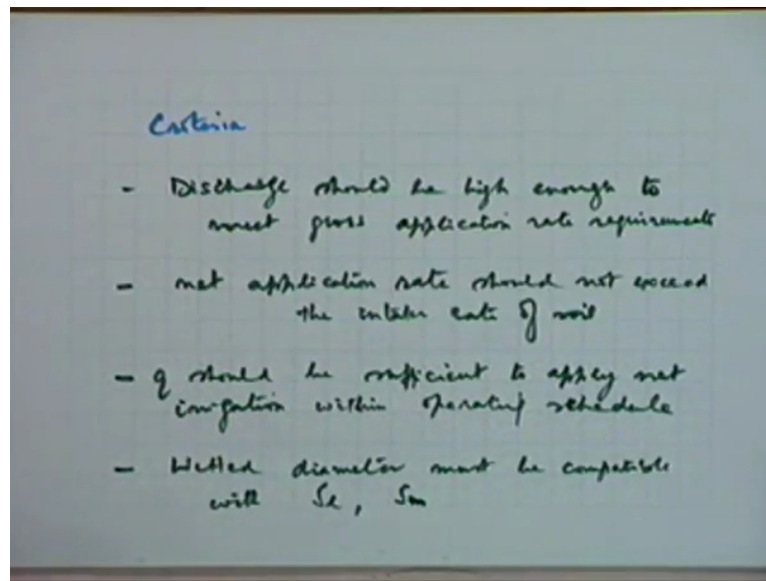 Criteria
- Discharge should be high enough to
meet gross application rate requirements
- net application rate should not exceed
the intake rate of soil
- q should be sufficient to apply net
irrigation within operating schedule
- Wetted diameter must be compatible
with Sl, Sm